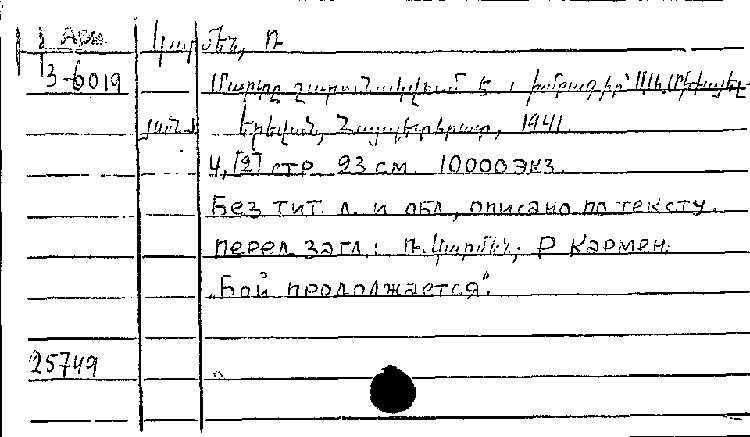 1 Арм
3-6019
Կարմեն, Ռ
Մարտը շարունակվում է ։ խմբագիր՝
Երևան, Հայպետհրատ, 1941.
4, [2] стр 23 см. 10000 экз.
Без тит. л. и обл., описано по тексту.
перел загл.: Ռ. Կարմեն; Р Кармен.
„Бой продолжается".
25749